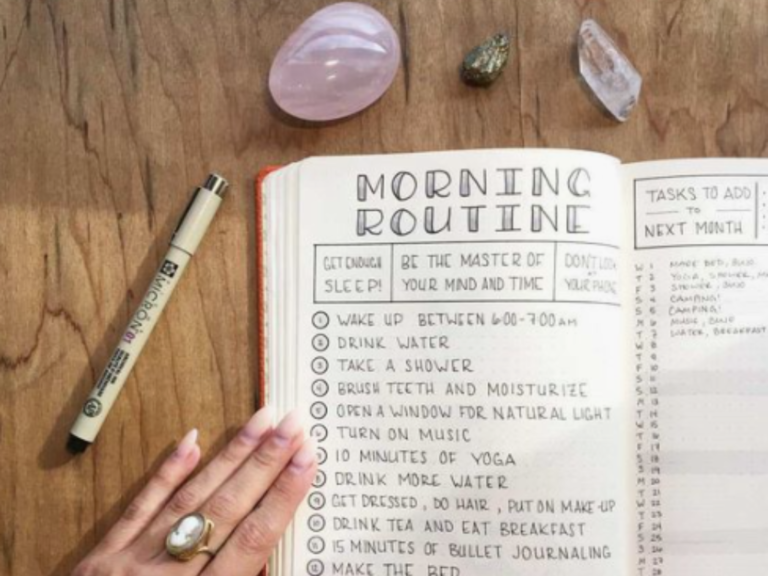 MORNING
ROUTINE
GET ENOUGH
SLEEP!
BE THE MASTER OF
YOUR MIND AND TIME
DON'T LOOK
AT
YOUR PHONE
1 WAKE UP BETWEEN 6:00-7:00 AM
2 DRINK WATER
3 TAKE A SHOWER
4 BRUSH TEETH AND MOISTURIZE
5 OPEN A WINDOW FOR NATURAL LIGHT
6 TURN ON MUSIC
7 10 MINUTES OF YOGA
8 DRINK MORE WATER
9 GET DRESSED, DO HAIR, PUT ON MAKE-UP
10 DRINK TEA AND EAT BREAKFAST
11 15 MINUTES OF BULLET JOURNALING
12 MAKE THE BED
TASKS TO ADD
TO
NEXT MONTH
W 1 MAKE BED, BUJO
T 2 YOGA, SHOWER,
F 3 SHOWER, BUJO
S 4 CAMPING!
S 5 CAMPING!
M 6 MUSIC, BUJO
T 7 WATER, BREAKFAST
W 8
T 9
F 10
S 11
S 12
M 13
T 14
W 15
T 16
F 17
S 18
S 19
M 20
T 21
W 22
T 23
F 24
S 25
S 26
M 27
T 28
MICRON 01